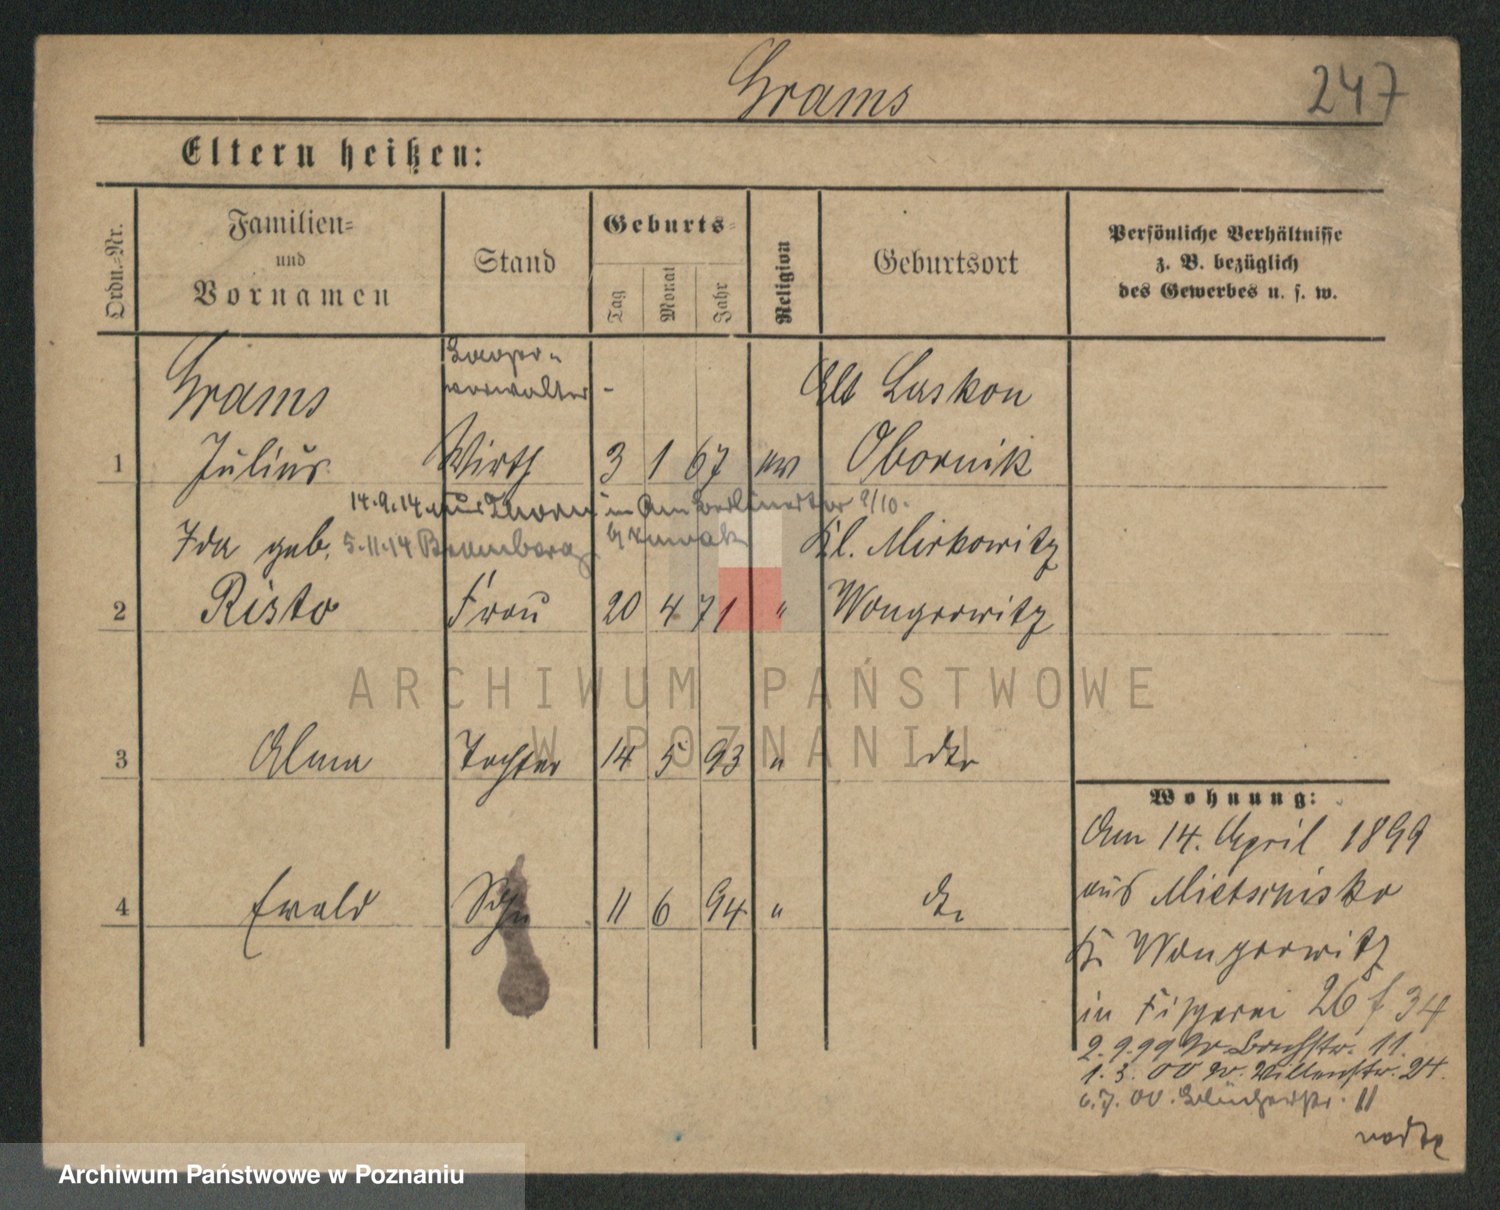 Grams
247
Eltern heißen:
Ordn.-Nr.
Familien-
und
Vornamen
Stand
Geburts-
Tag
Monat
Jahr
Religion
Geburtsort
Persönliche Verhältnisse
z. B. bezüglich
des Gewerbes u. s. w.
Grams
verwalter
Alt Laskon
1 Julius Wirth 3 1 67 ev Obornik
14.9.14 aus Thorn in Am Berliner Tor 9/10.
Ida geb. 5.11.14 Bromberg Kl. Mirkowitz
2 Risto Frau 20 4 71 " Wongrowitz
ARCHIWUM PAŃSTWOWE
W POZNANIU
3 Alma Tochter 14 5 93 " dto
Wohnung:
Am 14. April 1899
4 Ewald Sohn 11 6 94 " dto
aus Mietschisko
Kr Wongrowitz
in Fischerei 26 f 34
2.9.99 W Bachstr. 11.
1.3.00 W. 24.
6.7.00. Blücherstr. 11
Archiwum Państwowe w Poznaniu